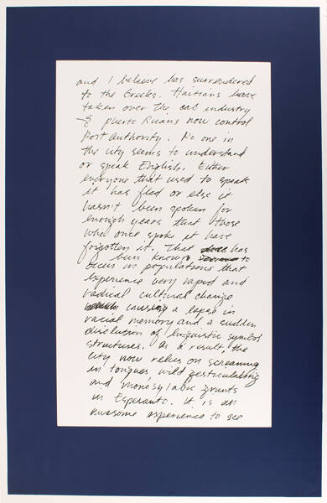 and I believe has surrendered
to the Greeks. Haitians have
taken over the cab industry
& Puerto Ricans now control
Port Authority. No one in
the city seems to understand
or speak English. Either
everyone that used to speak
it has fled or else it
hasn't been spoken for
enough years that those
who once spoke it have
forgotten it. That has
been known to
occur in populations that
experience very rapid and
radical cultural change
causing a lapse in
racial memory and a sudden
disclusion of linguistic symbol
structures. As a result, the
city now relies on screaming
in tongues, wild gesticulating
and monosylabic grunts
in Esperanto. It is an
awesome experience to see